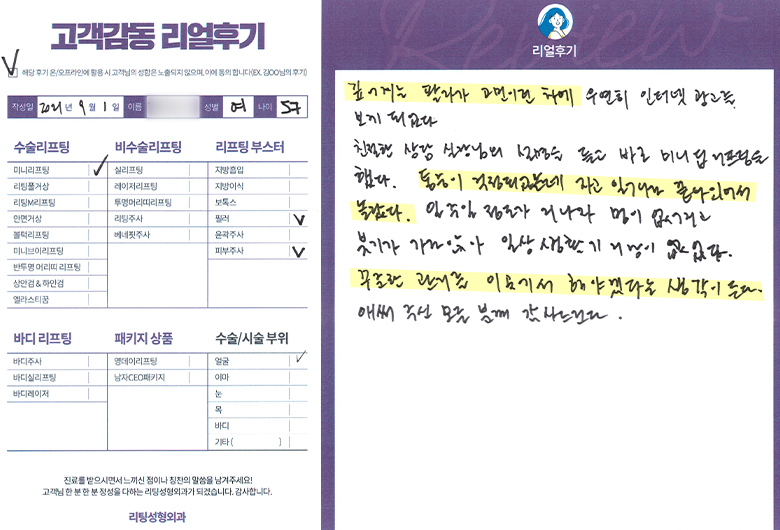 고객감동 리얼후기
해당 후기 온/오프라인에 활용 시 고객님의 성함은 노출되지 않으며, 이에 동의 합니다(EX. 김OO님의 후기)
작성일 2021년 9월 1일 이름 성별 여 나이 57
수술리프팅
미니리프팅
리팅풀거상
리팅M리프팅
안면거상
볼턱리프팅
미니브이리프팅
반투명 머리띠 리프팅
상안검 & 하안검
엘라스티꿈
비수술리프팅
실리프팅
레이저리프팅
투명머리띠리프팅
리팅주사
베네핏주사
리프팅 부스터
지방흡입
지방이식
보톡스
필러
윤곽주사
피부주사
바디 리프팅
바디주사
바디실리프팅
바디레이저
패키지 상품
영데이리프팅
남자CEO패키지
수술/시술 부위
얼굴
이마
눈
목
바디
기타 ( )
진료를 받으시면서 느끼신 점이나 칭찬의 말씀을 남겨주세요!
고객님 한 분 한 분 정성을 다하는 리팅성형외과가 되겠습니다. 감사합니다.
리팅성형외과
Review
리얼후기
팔자가 고민이던 차에 우연히 인터넷 광고를
보게 되었다
친절한 상담 실장님의 설명을 듣고 바로 미니 리프팅을
했다. 통증이 걱정되었는데 자고 일어나니
놀랐다. 일주일 정도가 지나자 멍이 없어지고
붓기가 가라앉아 일상생활하기 지장이 없었다.
꾸준한 관리를 이곳에서 해야겠다는 생각이 든다.
애써 주신 모든 분께 감사드린다.